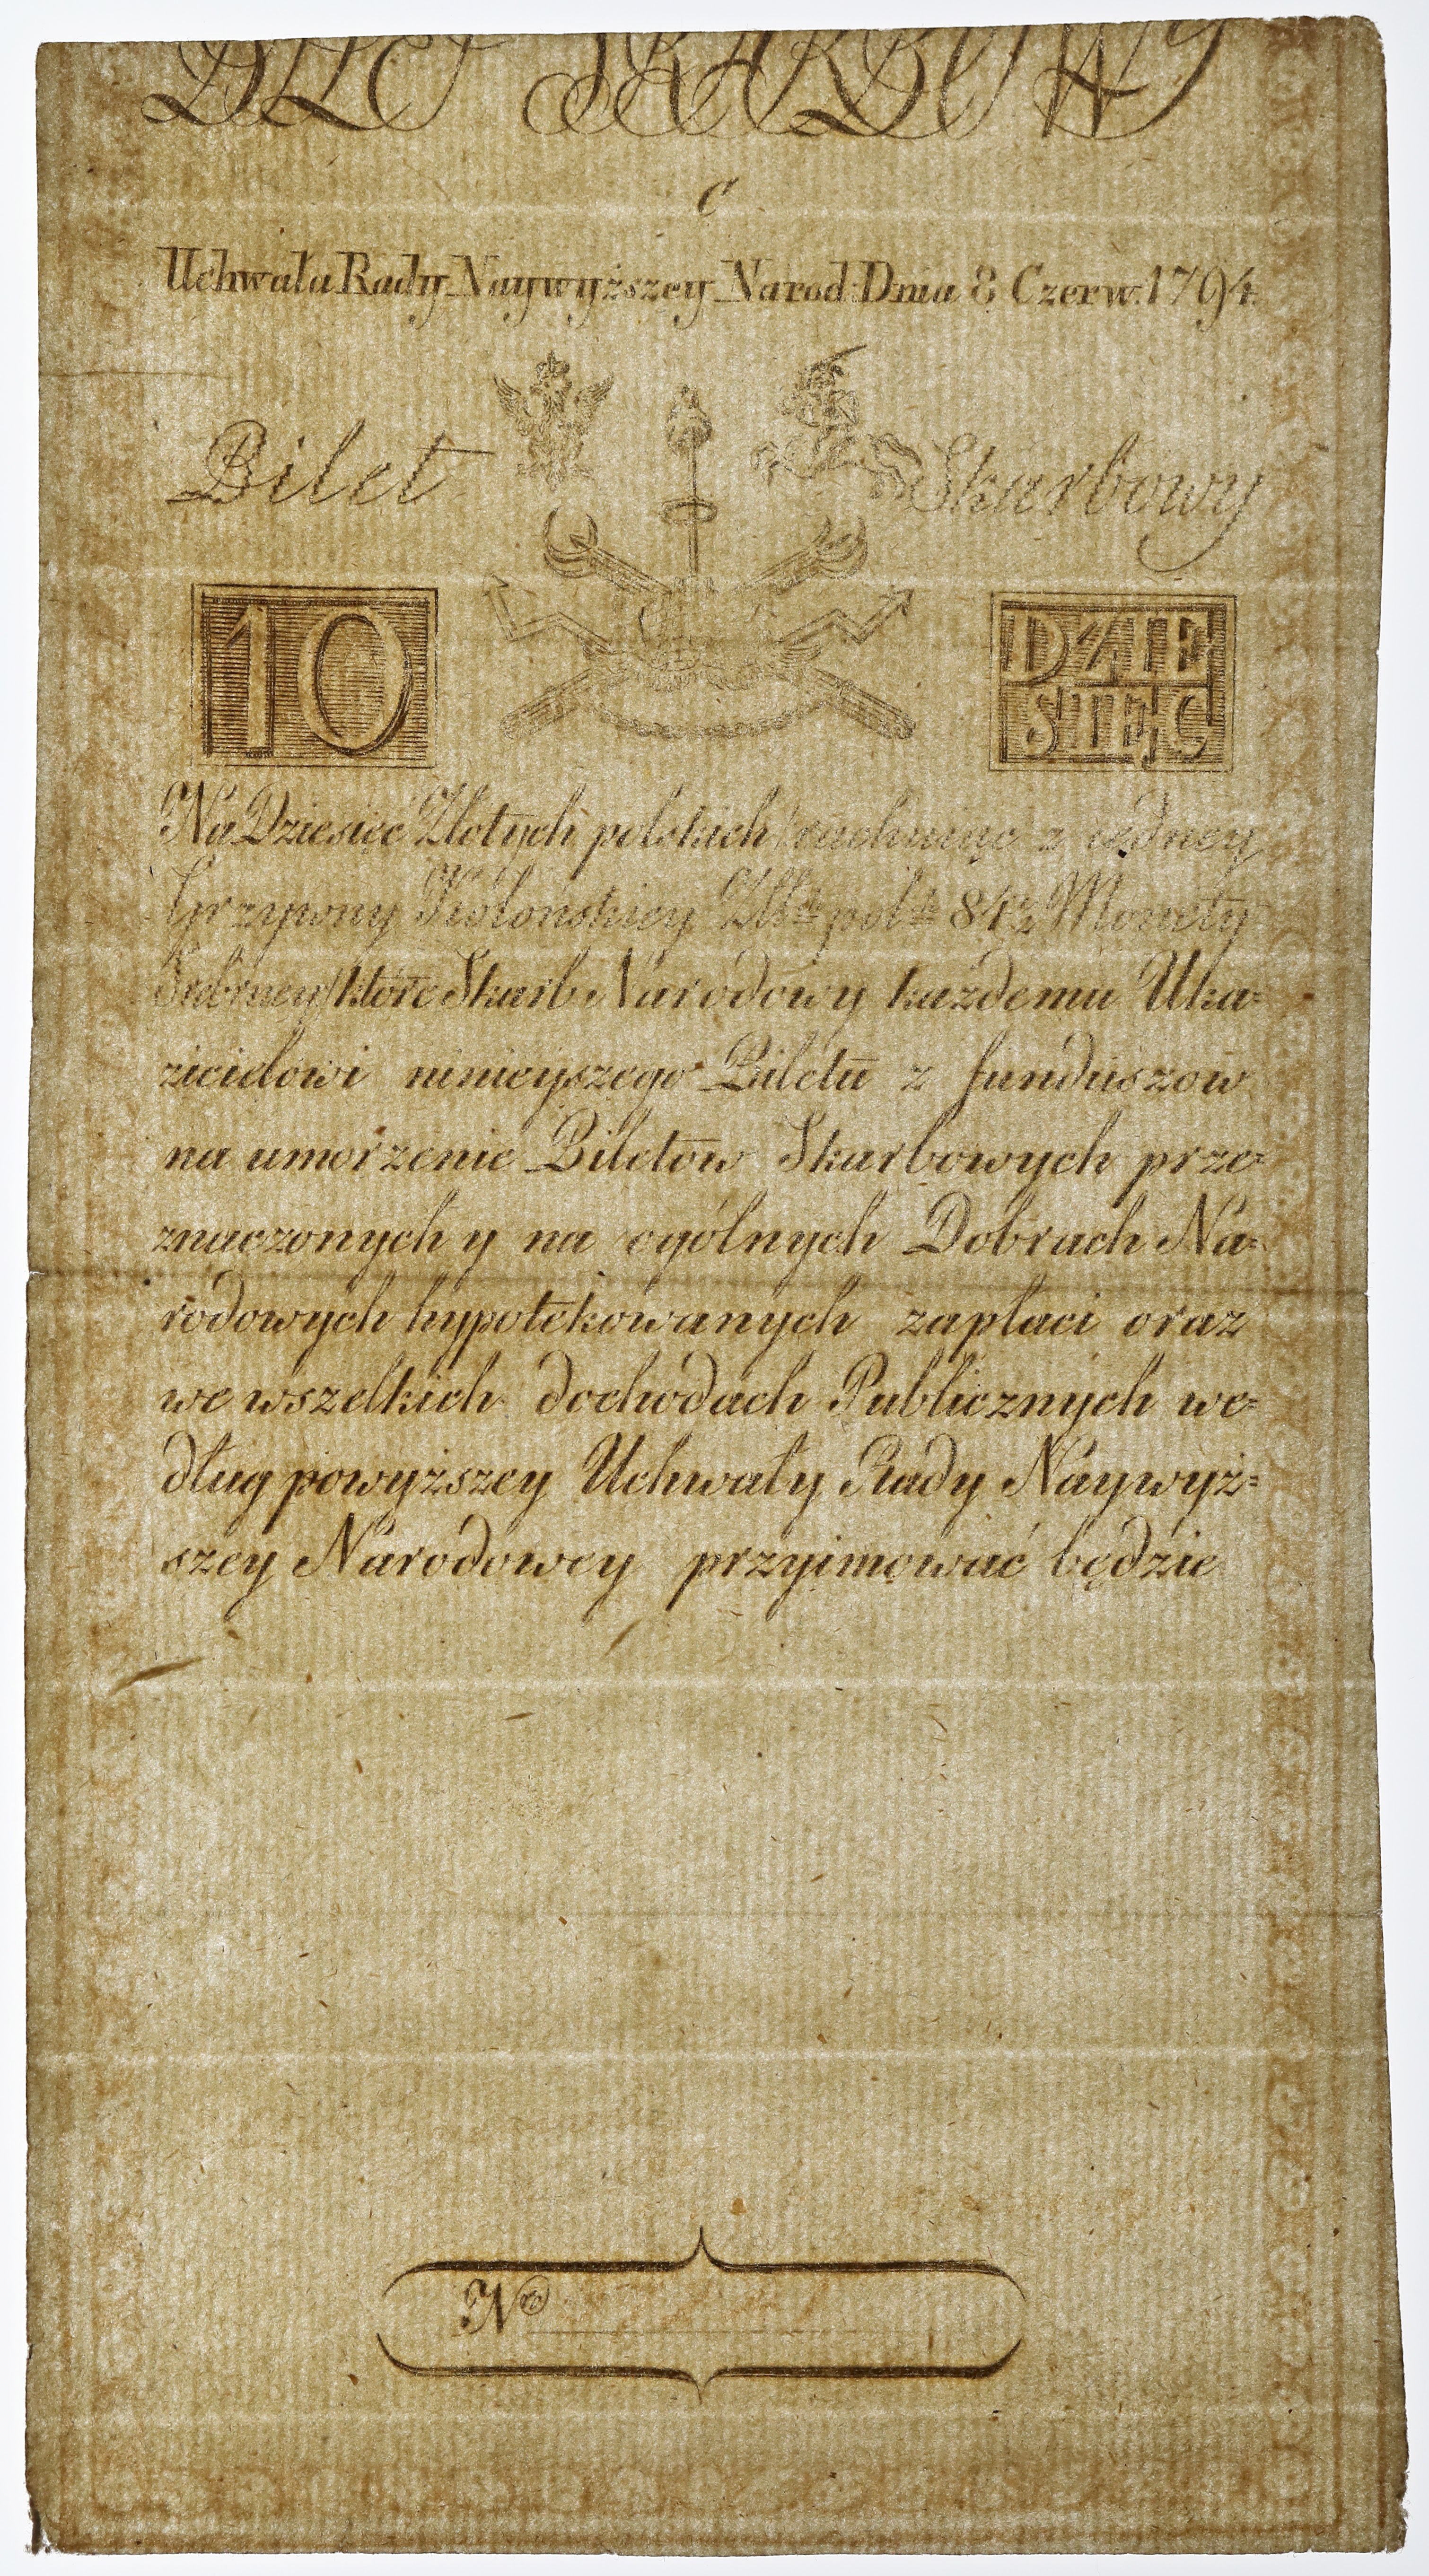 BILET SKARBOWY
C
Uchwała Rady Naywyższey Narod: Dnia 8 Czerw. 1794.
Bilet Skarbowy
10 DZIE
SIĘĆ
Na Dziesięć Złotych polskich /rachuiąc z iedney
Grzywny Kolońskiey Złł: pol: 84½ Monety
Srebrney/ które Skarb Narodowy każdemu Uka=
zicielowi ninieyszego Biletu z funduszow
na umorzenie Biletow Skarbowych prze=
znaczonych y na ogólnych Dobrach Na=
rodowych hypotekowanych zapłaci oraz
we wszelkich dochodach Publicznych we=
dług powyższey Uchwały Rady Naywyż=
szey Narodowey przyimować będzie
Nro